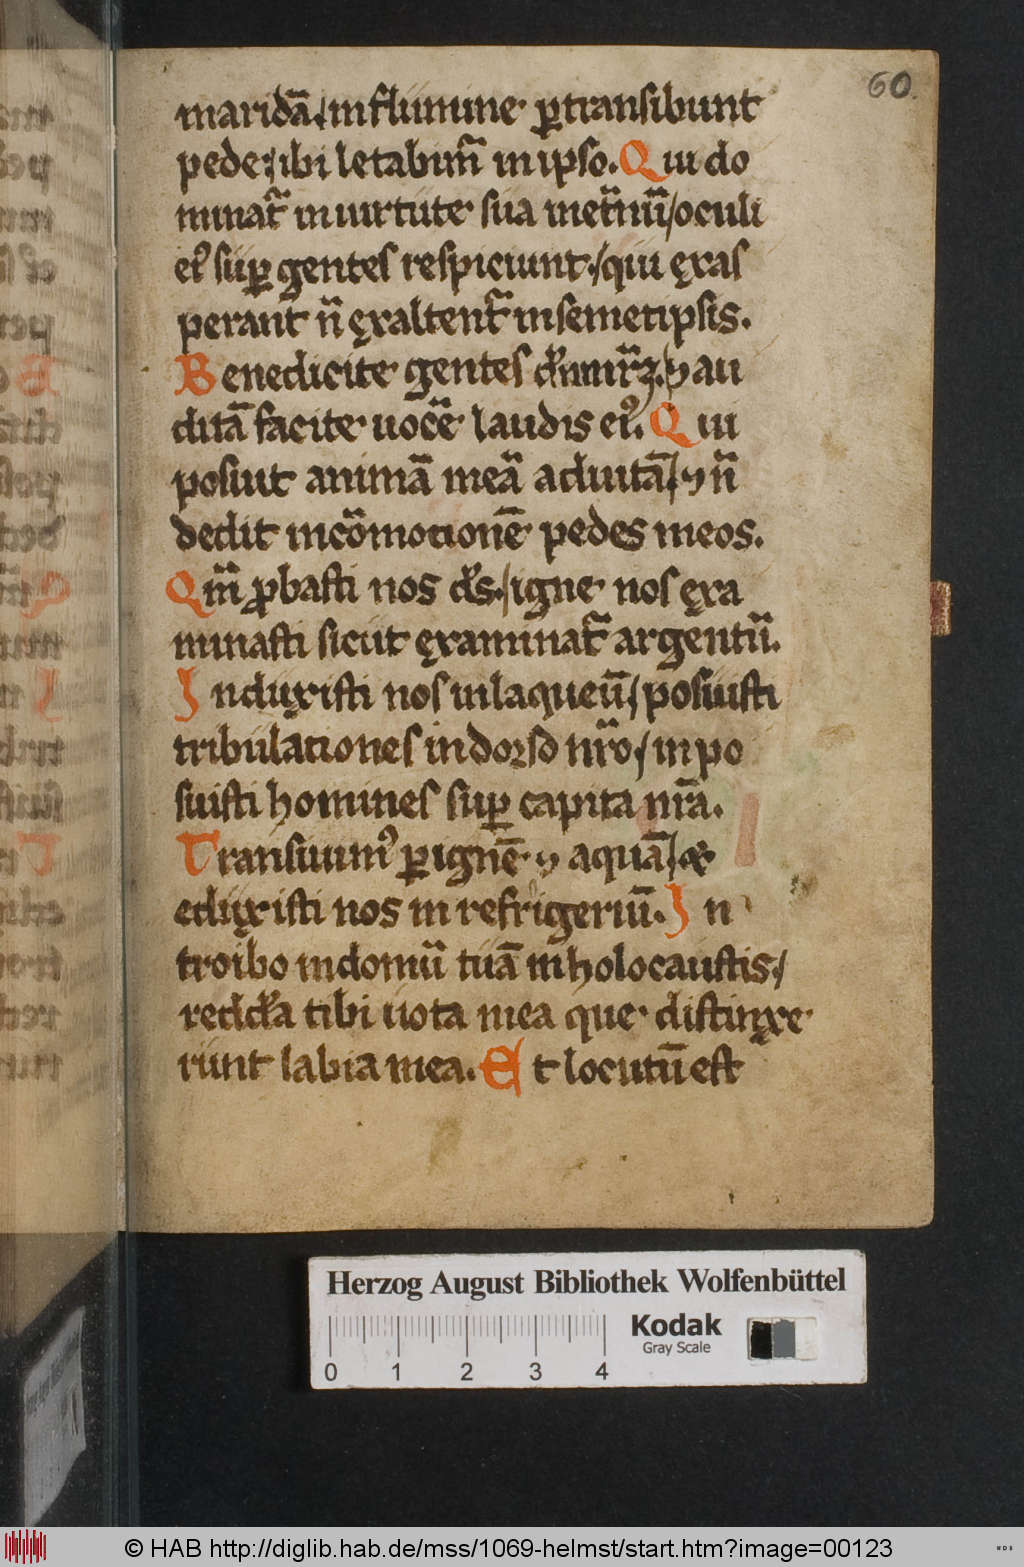 60.
maridā / influmine ꝑtransibunt
pede : / ibi letabunt̄ in ipso. Qui do
minat᷑ inuirtute sua inet᷑nū / oculi
eiꝰ suꝑ gentes respiciunt. / qui ęxas
perant n̄ ęxaltent᷑ insemetipsis.
Benedicite gentes dm̄ nr̄m. ⁊ au
ditā facite uocē laudis eiꝰ. Qui
posuit animā meā aduitā / ⁊ n̄
dedit incōmotionē pedes meos.
Qm̄ ꝓbasti nos ds̄. / igne nos ęxa
minasti sicut ęxaminat᷑ argentū.
Induxisti nos inlaqueū / posuisti
tribulationes indorso nr̄o / inpo
suisti homines suꝑ capita nr̄a.
Transiuimꝰ ꝑ ignē ⁊ aquā / &
eduxisti nos in refrigeriū. In
troibo indomū tuā in holocaustis. /
reddā tibi uota mea que distinxe
runt labia mea. Et locutū est
Herzog August Bibliothek Wolfenbüttel
Kodak
Gray Scale
0 1 2 3 4
© HAB http://diglib.hab.de/mss/1069-helmst/start.htm?image=00123